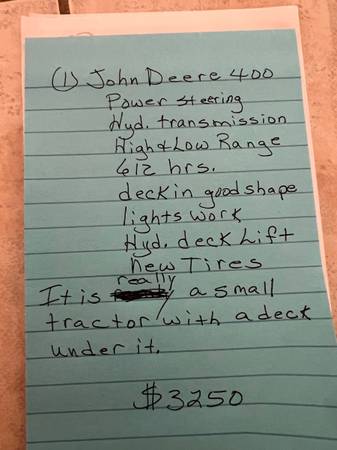 (1) John Deere 400
Power steering
Hyd. transmission
High & Low Range
612 hrs.
deck in good shape
lights work
Hyd. deck Lift
new Tires
really
It is a small
tractor with a deck
under it.
$3250